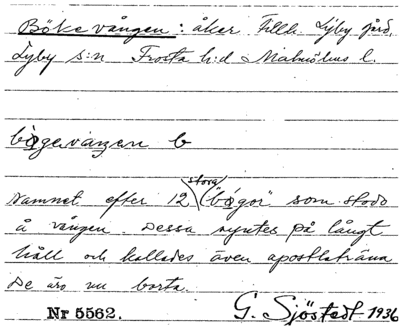 Bökevången: åker tillh. Lyby gård,
Lyby s:n Frosta h:d Malmöhus l.
bøgevaŋen b
stora
Namnet efter 12 "bøgor" som stodo
å vången. Dessa syntes på långt
håll och kallades även apostlaträna
De äro nu borta.
Nr 5562. G. Sjöstedt 1936